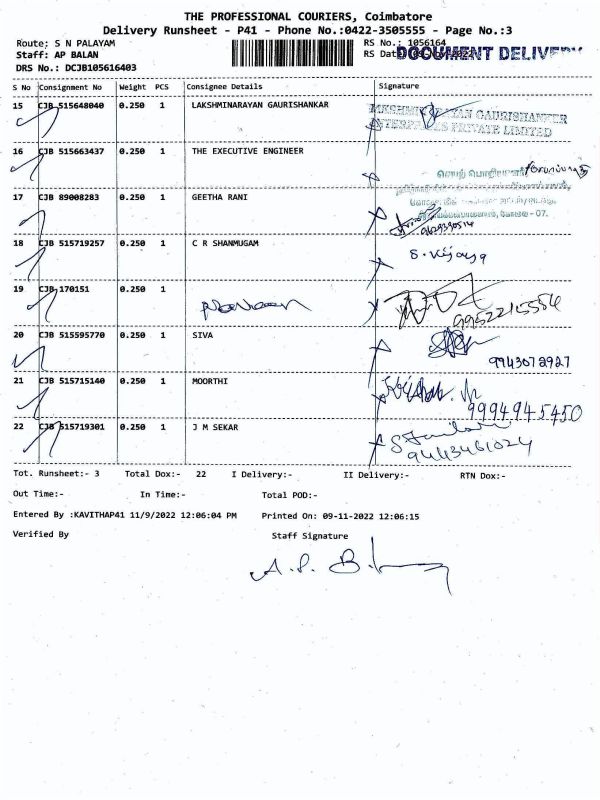 THE PROFESSIONAL COURIERS, Coimbatore
Delivery Runsheet - P41 - Phone No.:0422-3505555 - Page No.:3
Route: S N PALAYAM
RS No.: 1056164
Staff: AP BALAN
RS Date: DOCUMENT DELIVERY
DRS No.: DCJB105616403
S No Consignment No Weight PCS Consignee Details Signature
15 CJB 515648040 0.250 1 LAKSHMINARAYAN GAURISHANKAR
GAURISHANKER
PRIVATE LIMITED
16 CJB 515663437 0.250 1 THE EXECUTIVE ENGINEER
கோவை - 07.
17 CJB 89008283 0.250 1 GEETHA RANI
18 CJB 515719257 0.250 1 C R SHANMUGAM S. Vijaya
19 CJB 170151 0.250 1
9952215554
20 CJB 515595770 0.250 1 SIVA
9943072927
21 CJB 515715140 0.250 1 MOORTHI
9994945450
22 CJB 515719301 0.250 1 J M SEKAR
9443461024
Tot. Runsheet:- 3 Total Dox:- 22 I Delivery:- II Delivery:- RTN Dox:-
Out Time:- In Time:- Total POD:-
Entered By :KAVITHAP41 11/9/2022 12:06:04 PM Printed On: 09-11-2022 12:06:15
Verified By Staff Signature
A.P. B